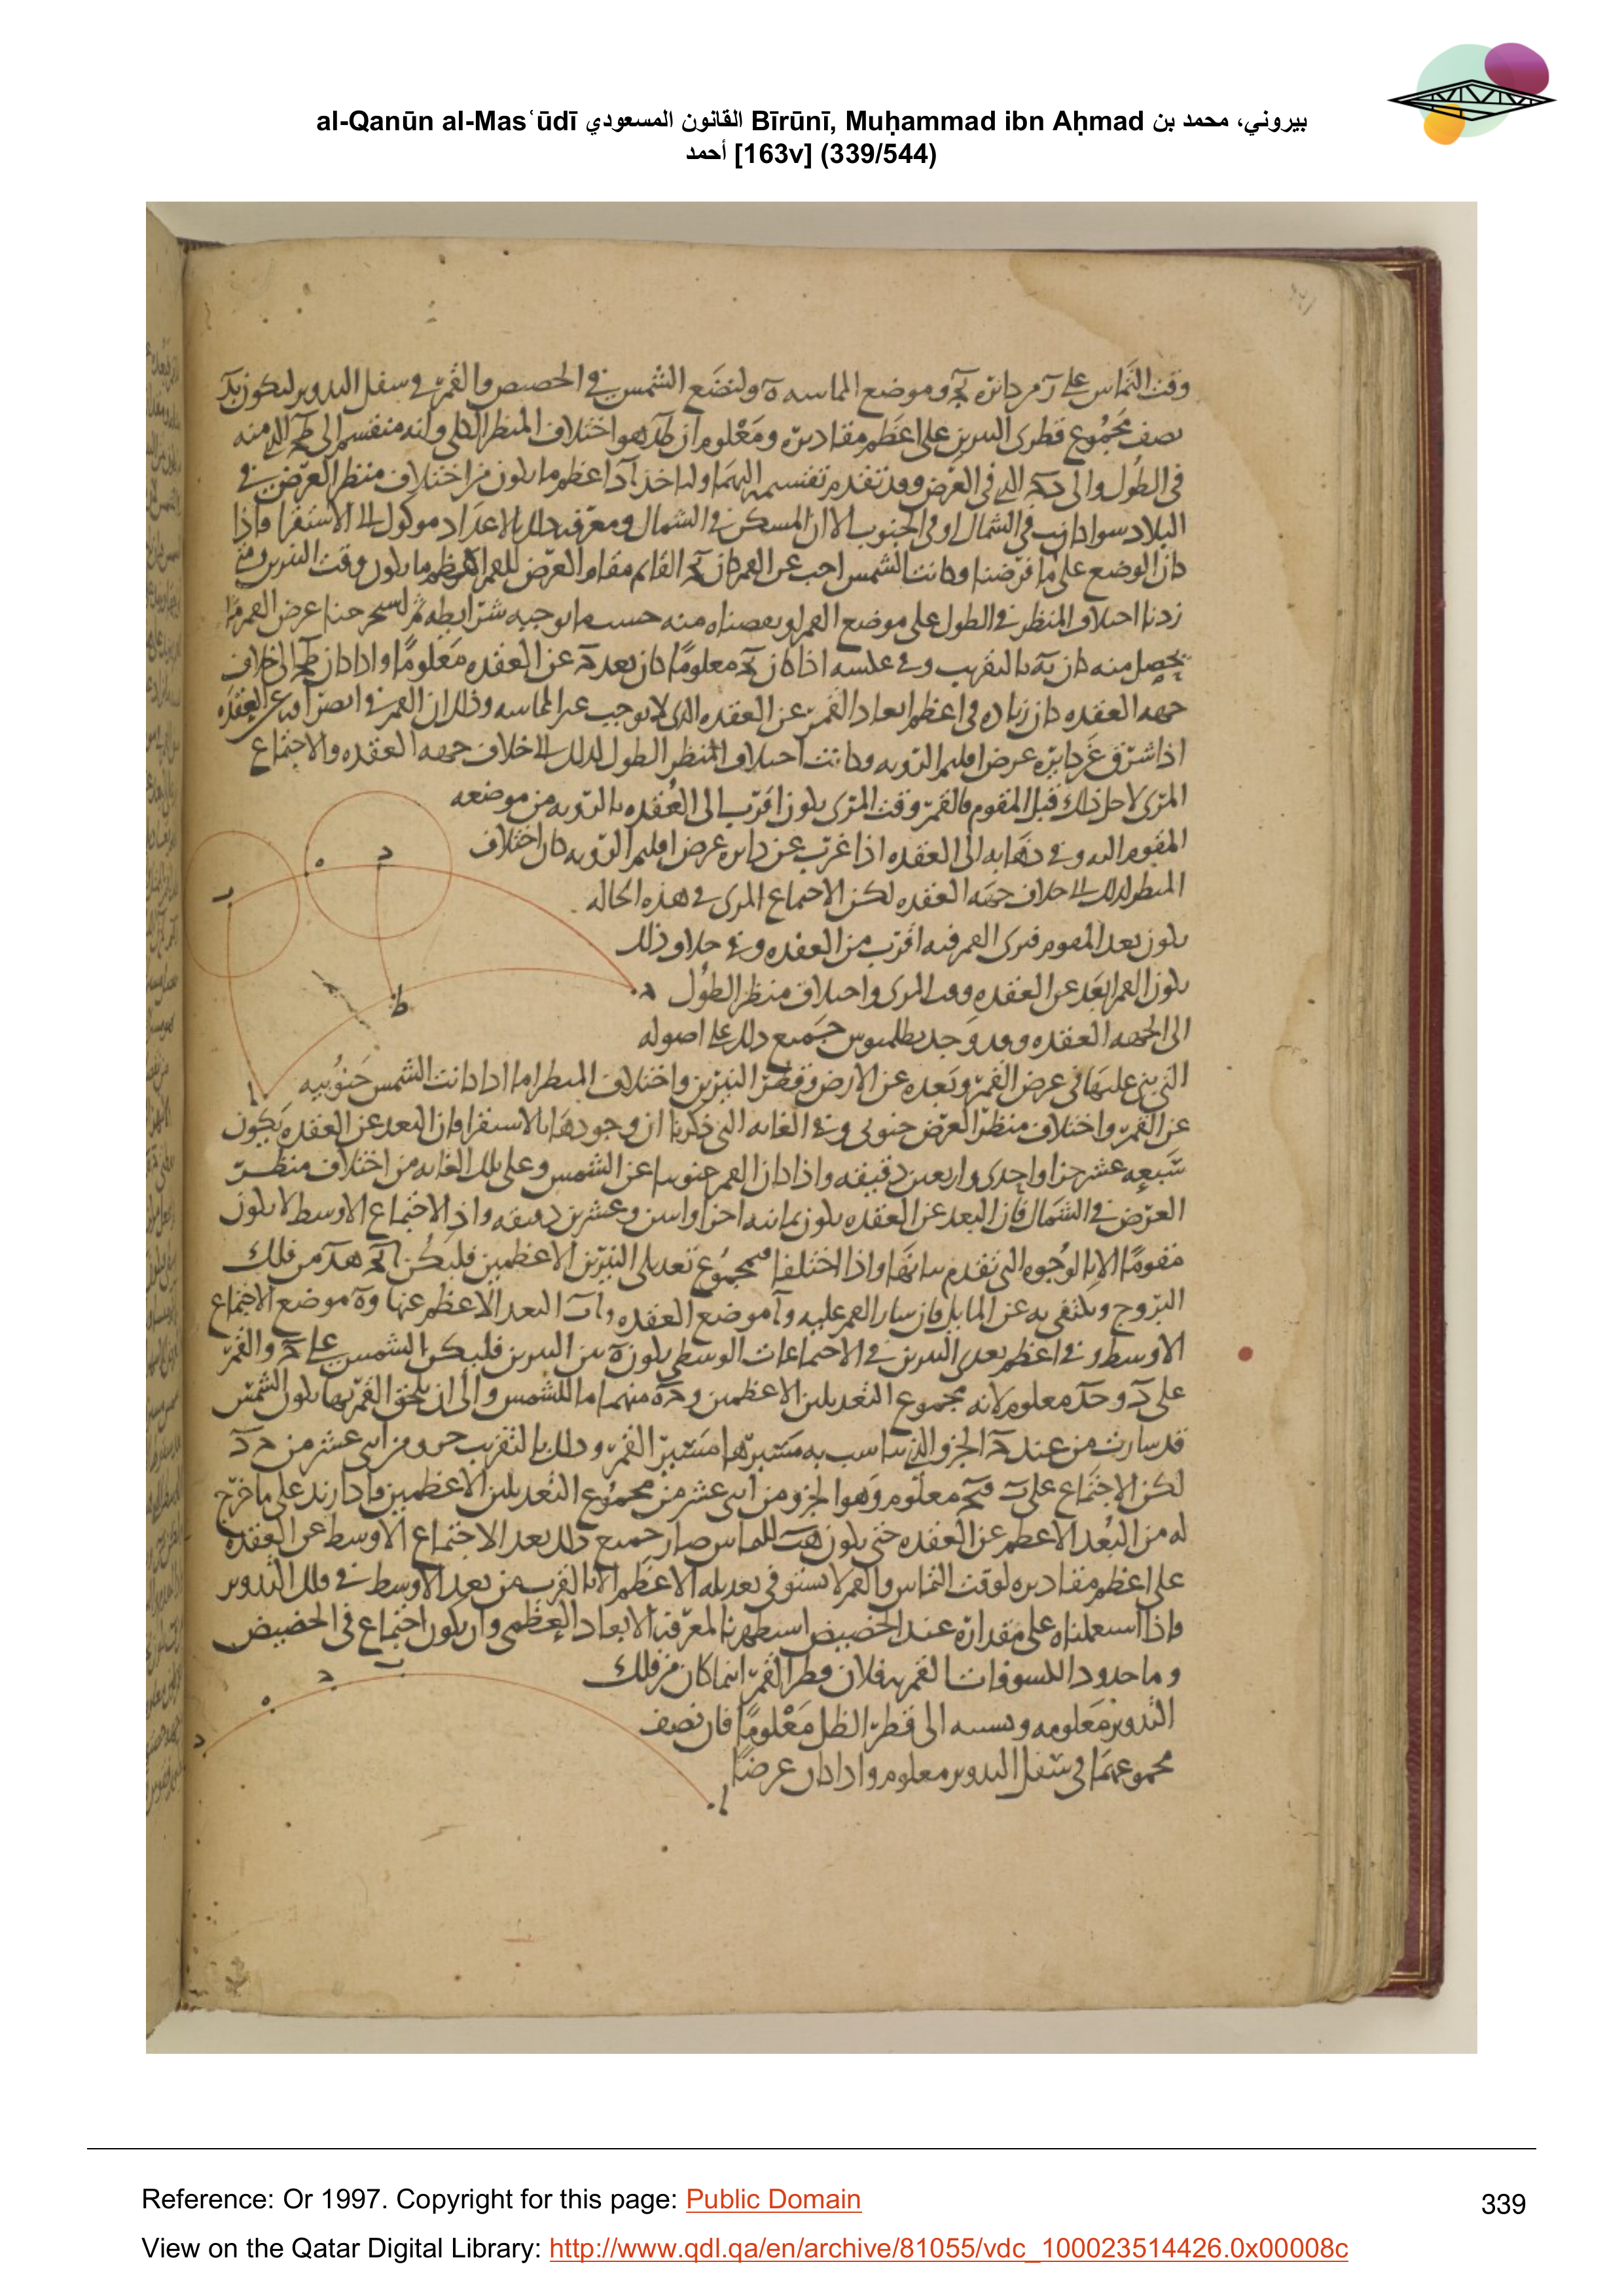 al-Qanūn al-Masʿūdī القانون المسعودي Bīrūnī, Muḥammad ibn Aḥmad بيروني، محمد بن
أحمد [163v] (339/544)
وقت التماس على آ من دائرة وموضع المماسه ه ولنضع الشمس في الحضيض والقمر في سفل التدوير ليكون
نصف مجموع قطرى النيرين على اعظم مقاديره ومعلوم ان هو اختلاف المنظر الكلى وانه منقسم الى الذي منه
في الطول والى الذي في العرض وقد تقدم تقسيمه اليهما ولناخذ اعظم ما يكون من اختلاف منظر العرض في
البلاد سوا كانت في الشمال او في الجنوب الا ان المسكن في الشمال ومعرفة ذلك بالاعداد موكول الى الاستقرا فاذا
كان الوضع على ما فرضنا وكانت الشمس عن القمر كان القائم مقام العرض للقمر اعظم ما يكون وقت
زدنا اختلاف المنظر في الطول على موضع القمر او نقصناه منه حسب ما توجبه شرايطه ثم عرض القمر
يحصل منه كان بالتقريب وفي عكسه اذا كان معلوما كان بعد عن العقده معلوما واذا كان الى خلاف
جهه العقده كان زياده في اعظم ابعاد القمر عن العقده الذى لا يوجب المماسه وذلك ان القمر في انصرافه عن العقده
اذا شرق عن دايرة عرض اقليم الرويه وكانت اختلاف المنظر الطول لذلك الى خلاف جهه العقده والاجتماع
المرى لاجل ذلك قبل المقوم فالقمر وقت المرى يكون اقرب الى العقده بالرويه من موضعه
المقوم اليه وفي ذهابه الى العقده اذا غرب عن دايره عرض اقليم الرويه كان اختلاف
المنظر لذلك الى خلاف جهه العقده لكن الاجتماع المرى في هذه الحاله
يكون بعد المقوم فيرى القمر فيه اقرب من العقده وفي خلاف ذلك
يكون القمر ابعد عن العقده وقت المرى واختلاف منظر الطول
الى الجهه العقده وقد وجد بطلميوس جميع ذلك على اصوله
التي بنى عليها في عرض القمر وبعده عن الارض وقطر النيرين واختلاف المنظر اما اذا كانت الشمس جنوبيه
عن القمر واختلاف منظر العرض جنوبي وفي الغايه التي ذكرنا ان وجودها بالاستقرا فان البعد عن العقده يكون
سبعه عشر جزا واحدى واربعين دقيقه واذا كان القمر جنوبيا عن الشمس وعلى تلك الغايه من اختلاف منظر
العرض في الشمال فان البعد عن العقده يكون ثمانيه اجزا واثنين وعشرين دقيقه واذ الاجتماع الاوسط لا يكون
مقوما الا بالوجوه التي تقدم بيانها واذا اختلفا فمجموع تعديلى النيرين الاعظمين فليكن من فلك
البروج ونكتفى به عن المايل فان سار القمر عليه وآ موضع العقده و آب البعد الاعظم عنها وه موضع الاجتماع
الاوسط وفي اعظم بعدى النيرين في الاجتماعات الوسطى يكون ه بين النيرين فليكن الشمس على والقمر
على د و معلوم لانه مجموع التعديلين الاعظمين و منهما للشمس والى ان يلحق القمر بها يكون الشمس
قد سارت من عند الجزو الذي يناسب به مسيرها مسير القمر وذلك بالتقريب جزو من اثنى عشر من
لكن الاجتماع على ب معلوم وهو الجزو من اثنى عشر من مجموع التعديلين الاعظمين فاذا زيد على ما خرج
له من البعد الاعظم عن العقده حتى يكون للتماس صار جميع ذلك بعد الاجتماع الاوسط عن العقده
على اعظم مقاديره لوقت التماس والقمر لا يستوفى تعديله الاعظم الا بالقرب من بعد الاوسط في فلك التدوير
واذا استعملناه على مقداره عند الحضيض استظهرنا لمعرفة الابعاد العظمى وان يكون اجتماع في الحضيض
وما حدود الكسوفات القمريه فلان قطر القمر اينما كان من فلك
التدوير معلومه ونسبه الى قطر الظل معلوما فان نصف
مجموعهما في سفل التدوير معلوم واذا كان عرضا
Reference: Or 1997. Copyright for this page: Public Domain
339
View on the Qatar Digital Library: http://www.qdl.qa/en/archive/81055/vdc_100023514426.0x00008c